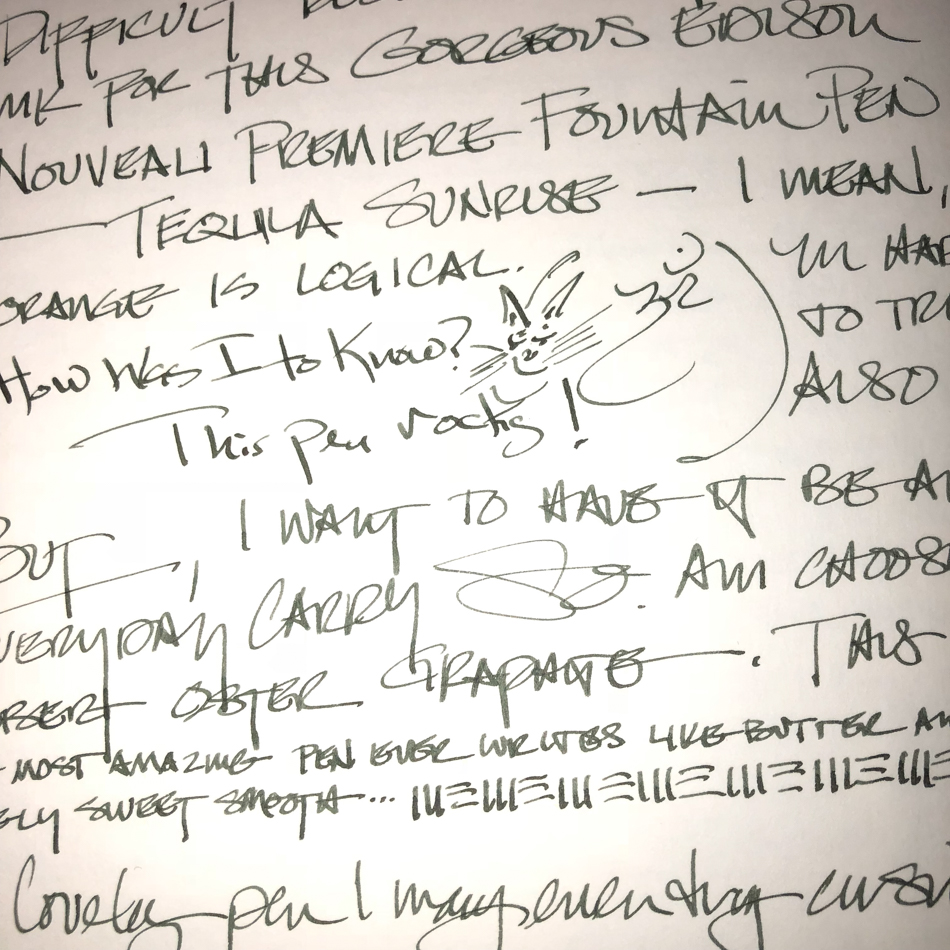 DIFFICULT
INK FOR THIS GORGEOUS EDISON
NOUVEAU PREMIERE FOUNTAIN PEN
— TEQUILA SUNRISE — I MEAN,
ORANGE IS LOGICAL.
How Was I to Know?
This pen rocks!
TO TRY
ALSO
BUT, I WANT TO HAVE IT BE AN
EVERYDAY CARRY SO. AM CHOOS
OBERT OSTER GRAPHITE. THIS
MOST AMAZING PEN EVER WRITES LIKE BUTTER AN
ELY SWEET SMOOTH...
Lovely pen I may even try cursi